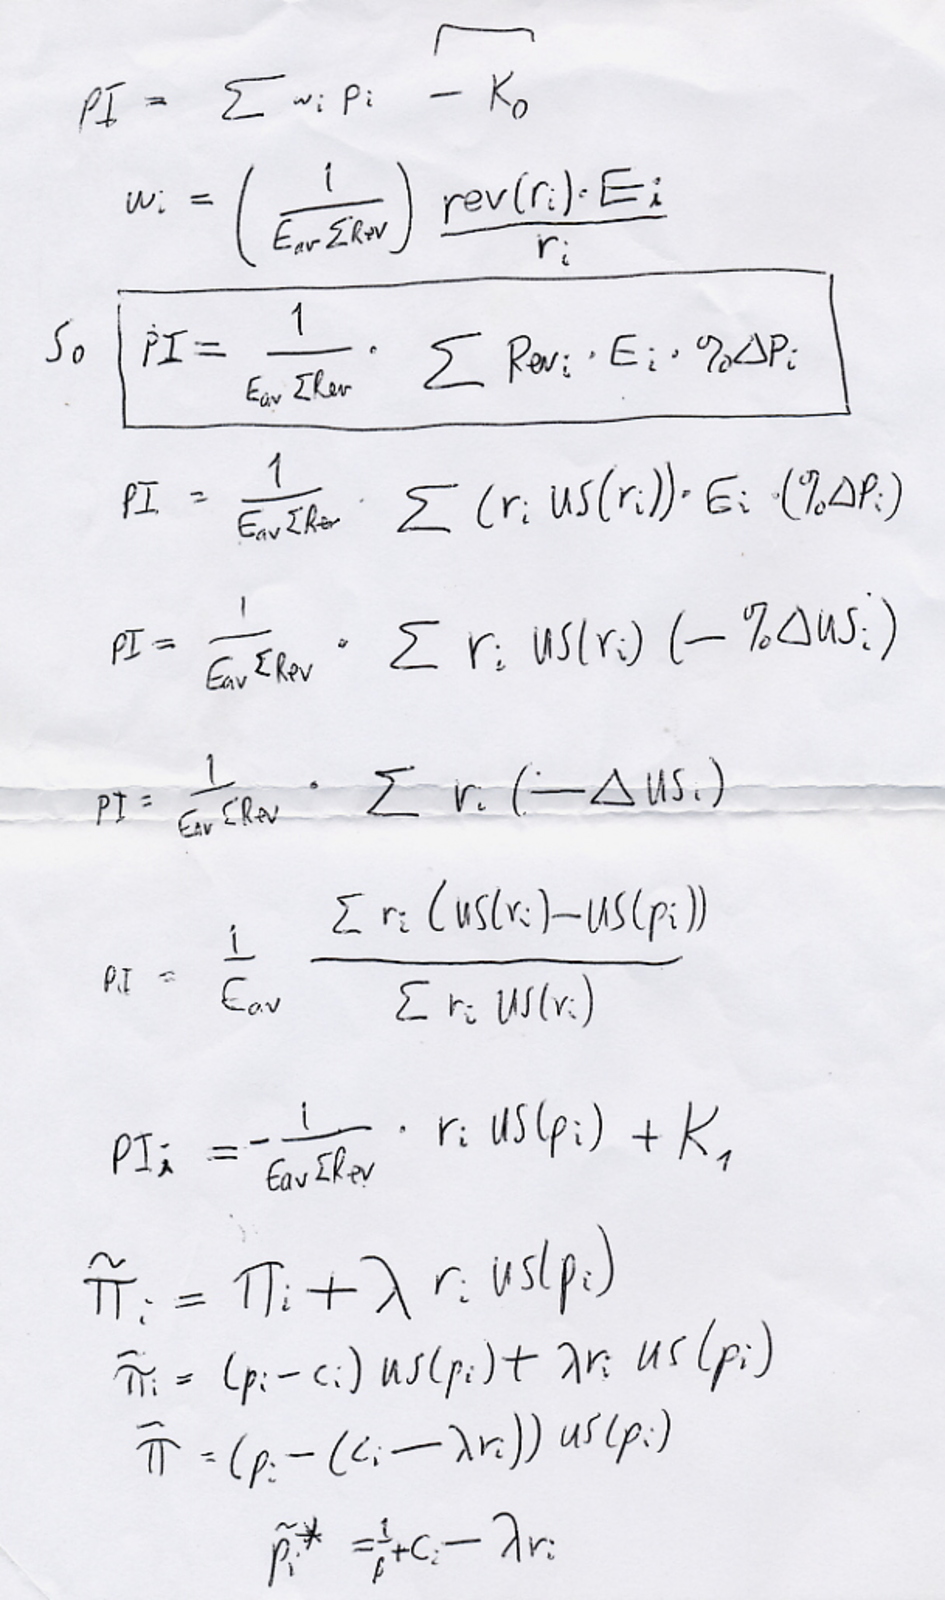 PI = Σ wᵢ pᵢ − K₀
wᵢ = (1 / (E_av ΣRev)) rev(rᵢ)·Eᵢ / rᵢ
So PI = 1 / (E_av ΣRev) · Σ Revᵢ · Eᵢ · %ΔPᵢ
PI = 1 / (E_av ΣRev) · Σ (rᵢ US(rᵢ)) · Eᵢ · (%ΔPᵢ)
PI = 1 / (E_av ΣRev) · Σ rᵢ US(rᵢ) (− %ΔUSᵢ)
PI = 1 / (E_av ΣRev) · Σ rᵢ (−ΔUSᵢ)
PI = 1 / E_av Σ rᵢ (US(rᵢ)−US(pᵢ)) / Σ rᵢ US(rᵢ)
PIᵢ = − 1 / (E_av ΣRev) · rᵢ US(pᵢ) + K₁
π̃ᵢ = πᵢ + λ rᵢ US(pᵢ)
π̃ᵢ = (pᵢ−cᵢ) US(pᵢ) + λrᵢ US(pᵢ)
π̃ = (pᵢ−(cᵢ−λrᵢ)) US(pᵢ)
p̃ᵢ* = 1/β + cᵢ − λrᵢ